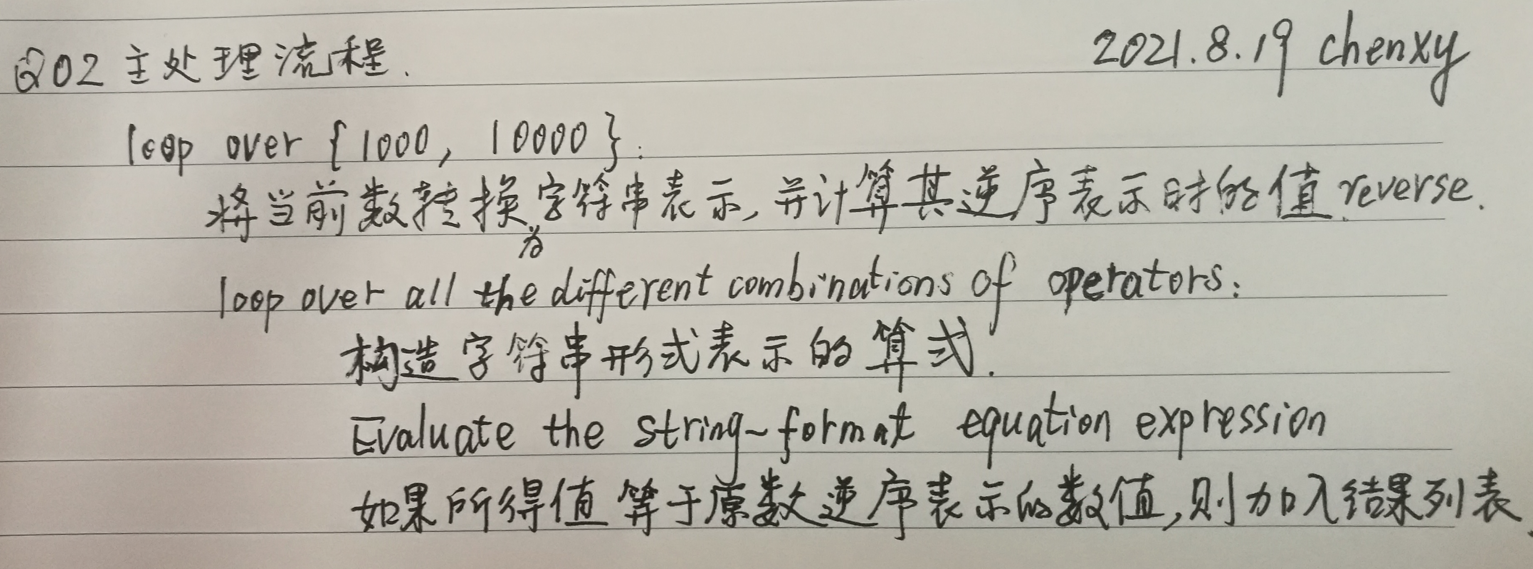 Q02 主处理流程. 2021.8.19 chenxy
loop over {1000, 10000}:
将当前数转换为字符串表示, 并计算其逆序表示时的值 reverse.
loop over all the different combinations of operators:
构造字符串形式表示的算式.
Evaluate the string-format equation expression
如果所得值等于原数逆序表示的数值, 则加入结果列表.